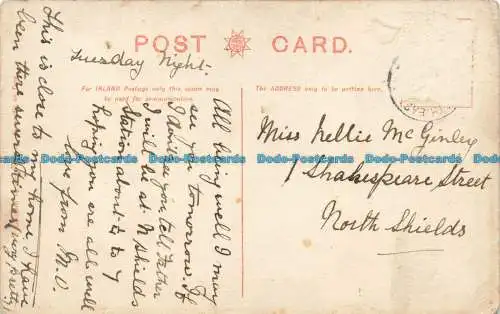 POST CARD.
For INLAND Postage only this space may
be used for communication.
The ADDRESS only to be written here.
Tuesday Night.
All being well I may
see you tomorrow. If
so will you tell Father
I will be at N Shields
Station about ¼ to 7
hoping you are all well
love from M.O.
This is close to my home I have
been there several times very pretty
Miss Nellie McGinley
1 Shakespeare Street
North Shields